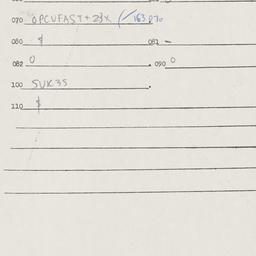 070 OPCVFAST+23X (163.070
080 $ 081 -
082 0 . 090 0
100 SUK35 .
110 $